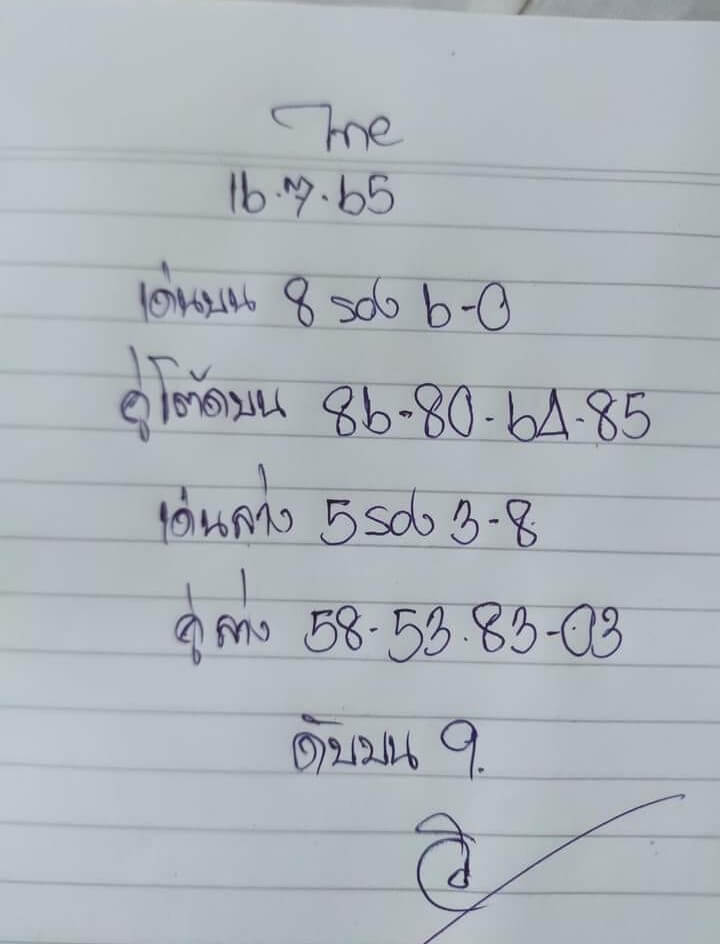 ไทย
16.7.65
เด่นบน 8 รอง 6-0
คู่โต๊ดบน 86-80-64-85
เด่นล่าง 5 รอง 3-8
คู่ล่าง 58-53.83-03
ดับบน 9.